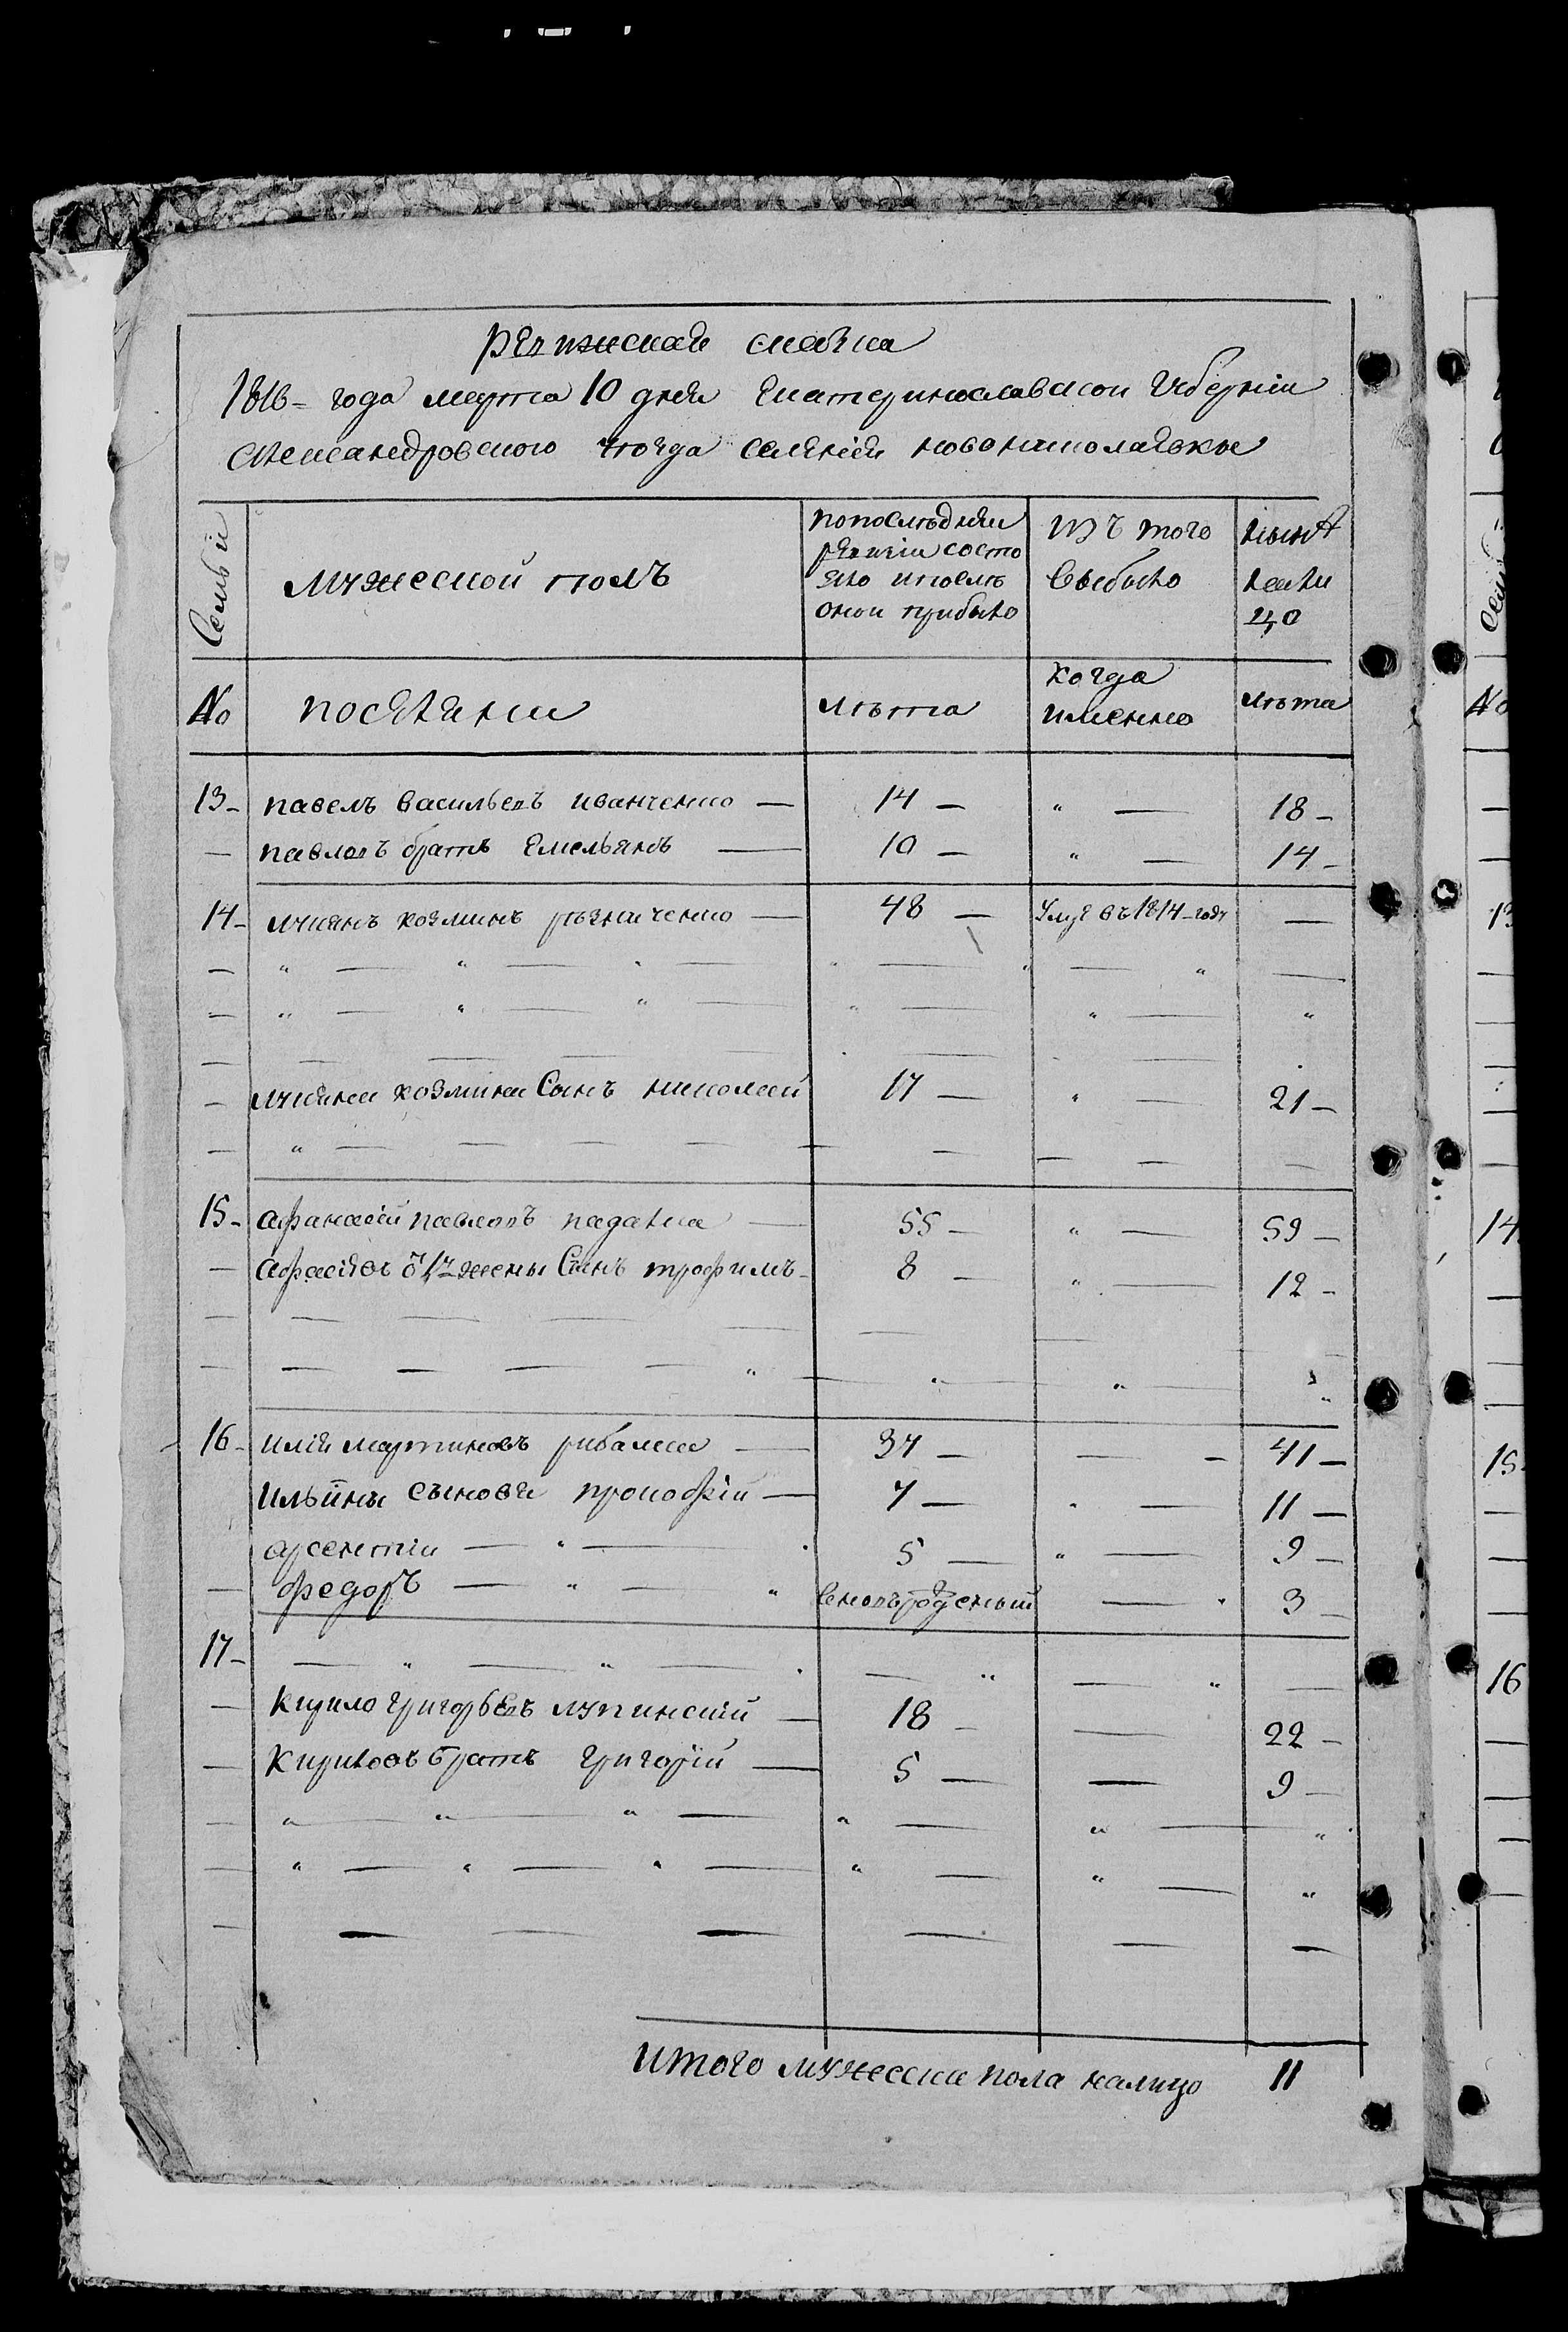 ревижская сказка
1816- года марта 10 дня Екатеринославской Губерніи
Александровского уезда селенія новониколаевки
Семьи
мужеской полъ
попоследнеи
ревизіи состо
яло ипослѣ
онои прибыло
изъ того
выбыло
нынѣ
нали
цо
No
поселяни
лѣта
когда
именно
лѣта
13- павелъ васильевъ иванченко — 14 — " — 18 -
— павловъ братъ Емельянъ — 10 — " — 14 -
14- лукянъ козминъ рѣзниченко — 48 — умре въ 1814-году —
- лукяна козмина Сынъ николай 17 — " — 21 -
15- афанасій павловъ падалка — 55 - " — 59 -
— Афанасіевъ жены Сынъ трофимъ - 8 - " — 12 -
16- илія мартиновъ рибалка — 37 — — - 41 —
Ильины сыновя прокофій — 7 — " — 11 —
арсентіи — " — 5 — " — 9 -
— федоръ — " — " вновърожденый — " 3 -
17-
— кирило григорьевъ лупинскій — 18 - — 22 -
— Кириловъ братъ григорій — 5 — — 9 -
итого мужеска пола налицо 11
No
13
14
15
16